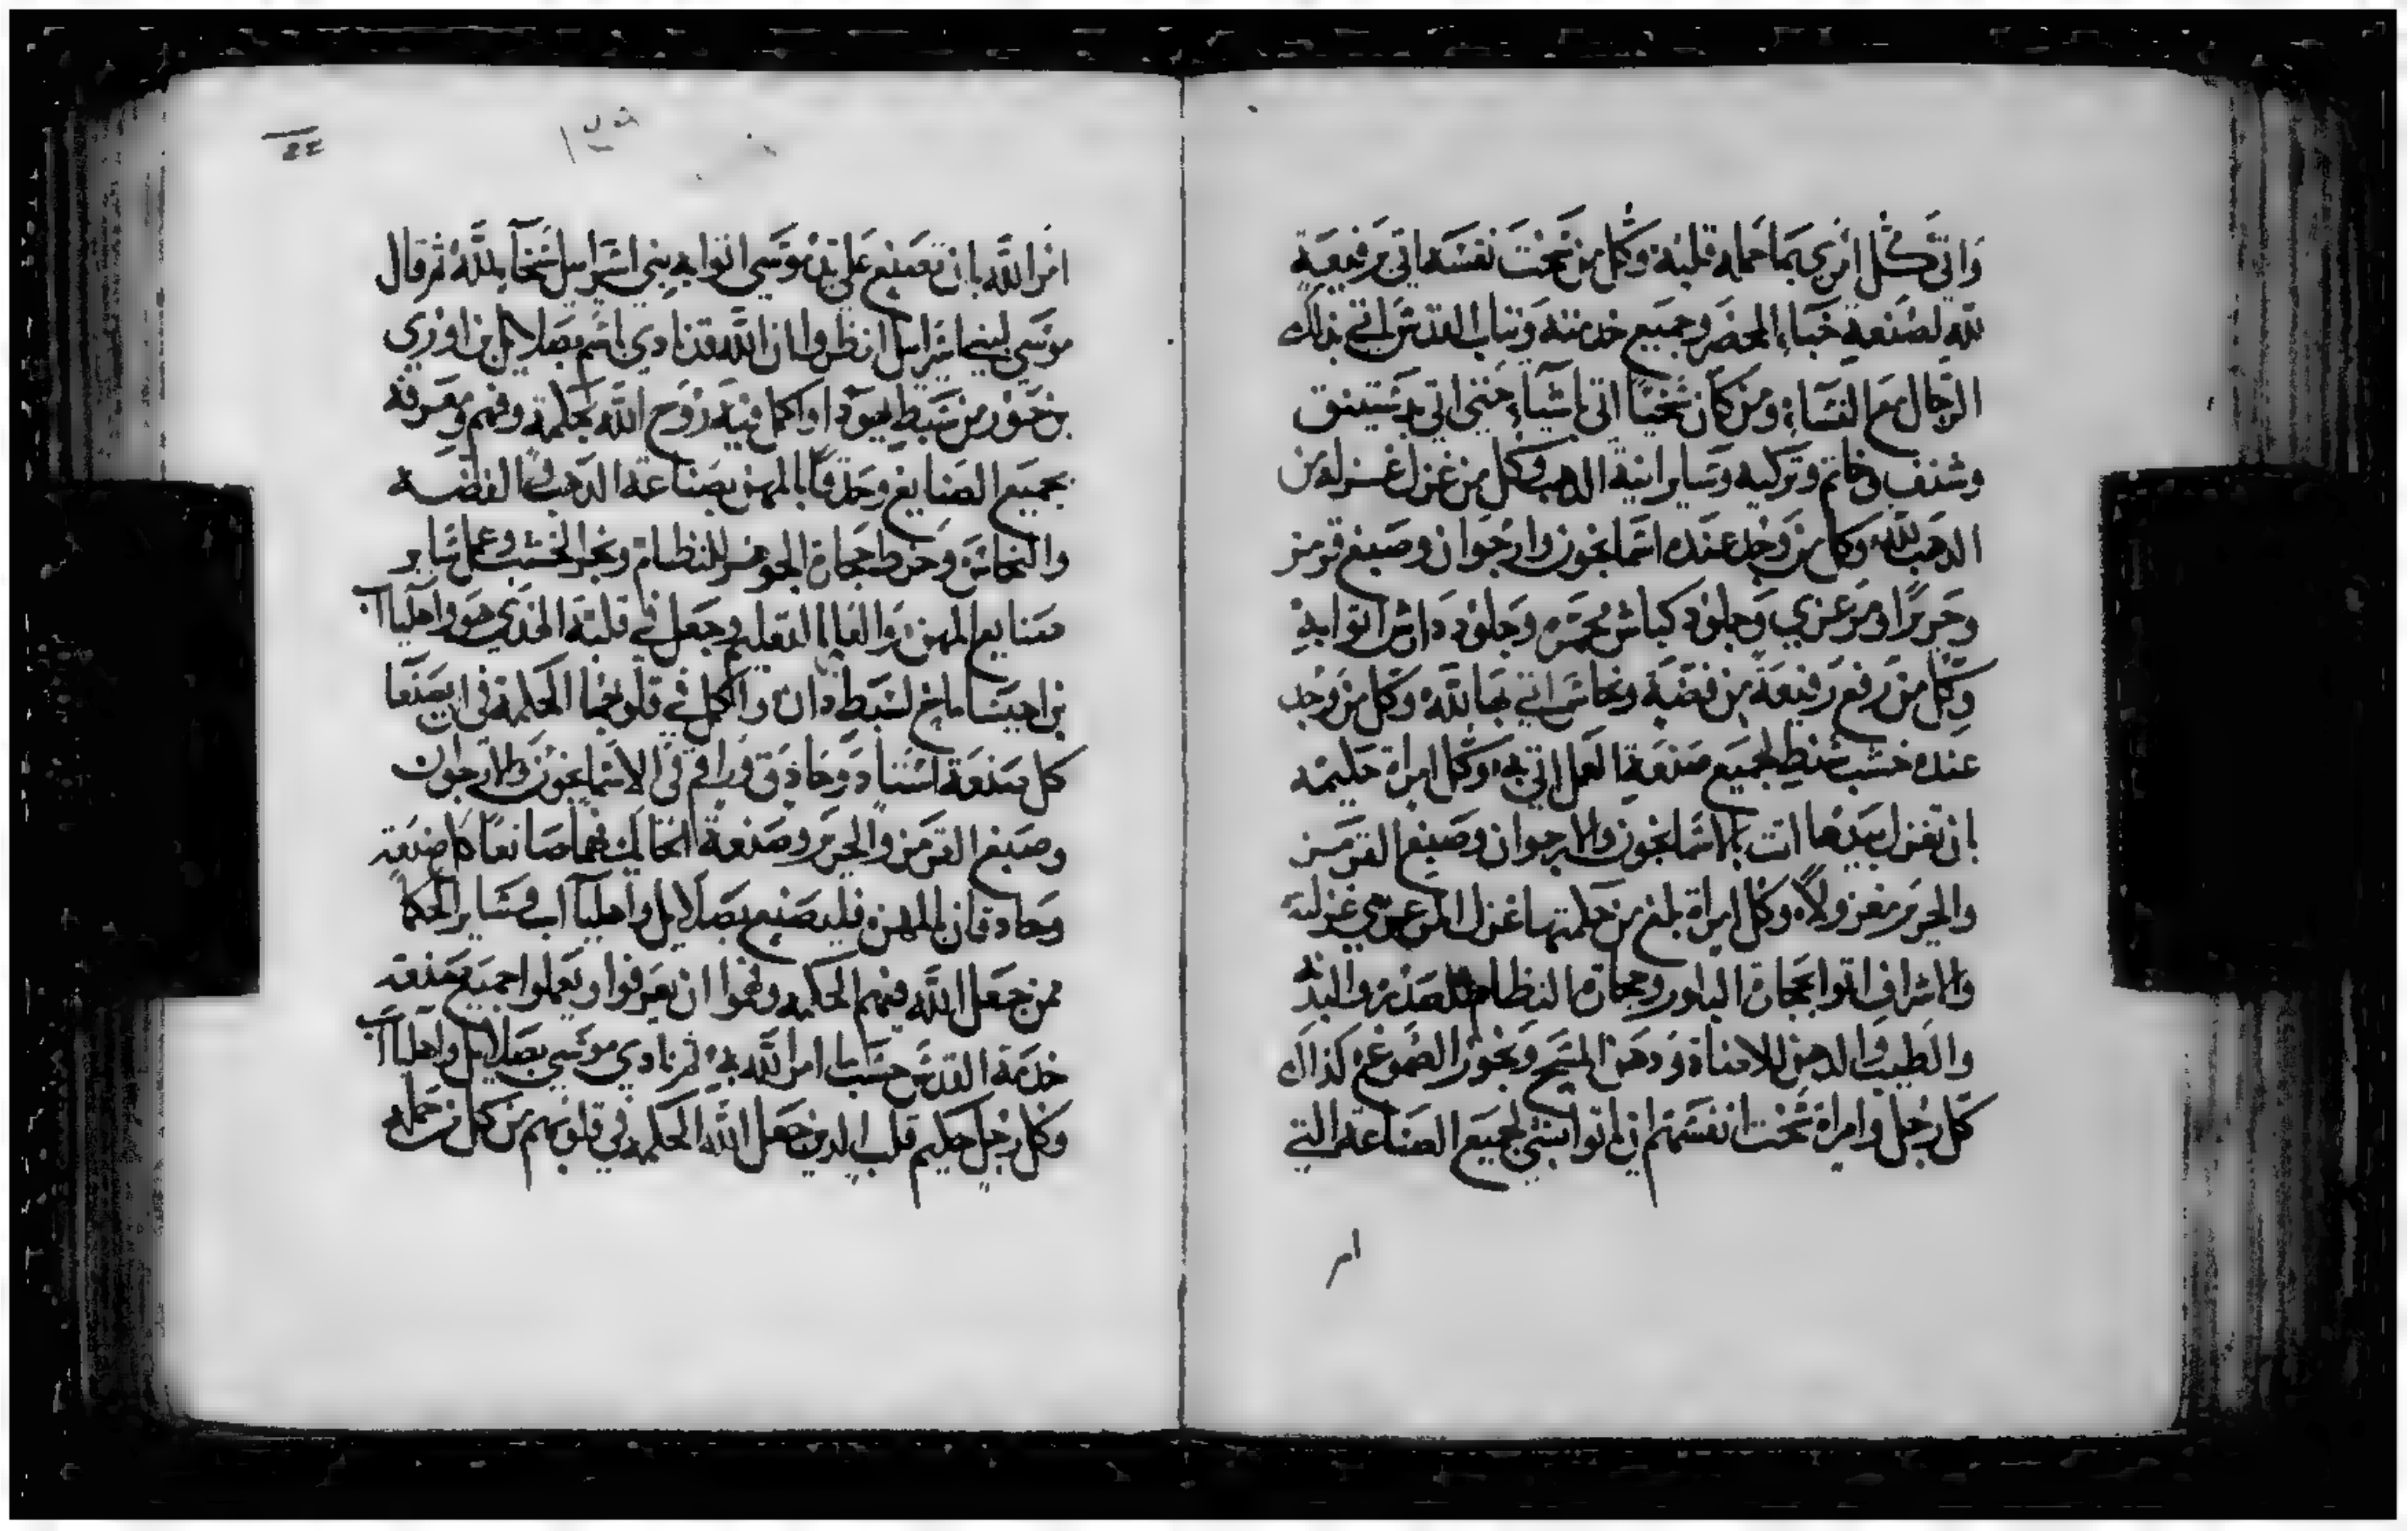 وَاتى كُل امرى بمَا حَمله قلبه وَكُل من سَخت نفسَه اتى برَفيعَة
لله لصَنعة خبَاء المحضر وجميع خدمته وَثياب القدس اتى بذلك
الرجال مع النسَاء ومَن كان سَخيًا اتى باشيآء حَتى اتى بدستينق
وشنف وخاتم وتركيه وسَاير انية الدهب وكل من غزل غزله من
الدهب لله وكل من وجد عنده اسمانجون وارجوان وصبغ قرمز
وحَريرًا ومرعزي وجلود كباش محمّره وجلود دارش اتوا بهِ
وكل من رفع رفيعَة من فضة ونحاس اتى بها لله وكل من وجد
عنده خشب شنط لجميع صنعَة العمل اتى به وكل امراة حكيمه
بان تغزل بيدها اتت بالاسمانجون والارجوان وصبغ القرمز
والحرير مغزولاً وكل امراة بلغ من حكمتها غزل المرعزي غزلته
والاشراف اتوا بحجارة البلور وحجارة النظام للصدره والبدنه
والطيب والدهن للاضاة ودهن المسَح وبخور الصموغ كذلك
كل رجل وامراة سَخت انفسَهم ان ياتوا بشي لجميع الصناعة التي
امر
امرَ الله بان تصنع عَلى يد موسَى اتوا به بني اسرايل سَخآ لله ثم قال
موسَى لبني اسرايل انظروا ان الله قد نادى باسم بصلايل بن اورى
بن حَور من سَبط يهودا واكمل فيه رُوح الله بحكمة وفهم ومعرفة
بجميع الصَنايع وحذقًا بالمهن بصناعة الدهب والفضه
والنحاس وخرط حجارة الجوهر للنظام ونجر الخشب وعمل سَاير
صَنايع المهن والقا التعليم وجعل في قلبه الحذق هو واهليآب
بن احيسَاماخ لسَبط دان واكمل في قلوبهما الحكمة في ان يصنعَا
كل صَنعَة استناد وحاذق وراقم في الاسمانجون والارجوان
وصبغ القرمز والحرير وصَنعة الحايك فهما صَانعَا كل صَنعَة
وحادقان بالمهن فليصنع بصَلايل واهليآب وسَاير الحكما
ممن جعل الله فيهم الحكمه وفهموا ان يعَرفوا ويعملوا جميع صَنعة
خدمَة القدسَ حسَب ما امر الله به ثم نادى موسَى بصلايل واهليآب
وكل رجل حكيم قلب الدين جعل الله الحكمه في قلوبهم من كل من حَمله